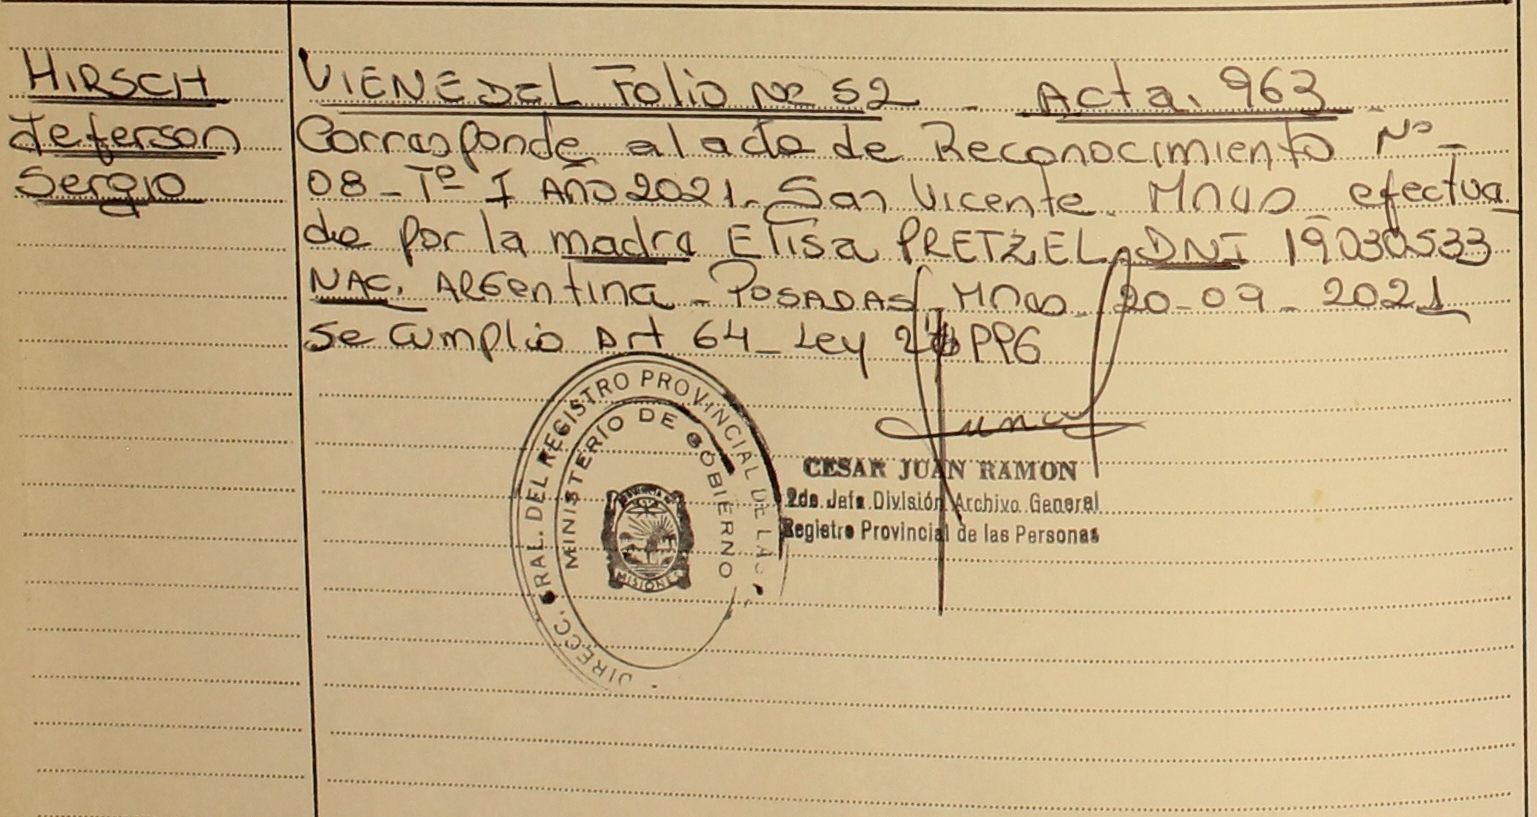 HIRSCH
Jeferson
Sergio
VIENE DEL Folio Nº 52 - Acta. 963 -
Corresponde al acta de Reconocimiento Nº -
08 - Tº I AÑO 2021. San Vicente. Mnes efectua
da por la madre Elisa PRETZEL DNI 19030533
NAC. ARGentina - POSADAS - Mnes - 20-09-2021
Se cumplio Art 64 - Ley PPG
DIRECC. GRAL. DEL REGISTRO PROVINCIAL DE LAS
MINISTERIO DE GOBIERNO
MISIONES
CESAR JUAN RAMON
2do. Jefe. División Archivo General
Registro Provincial de las Personas